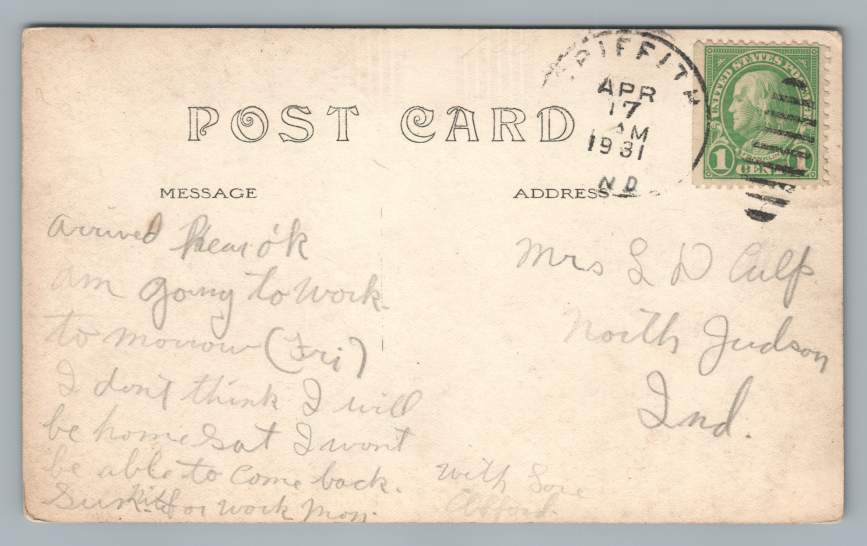 GRIFFITH
APR
17
AM
1931
IND
UNITED STATES POSTAGE
1 CENT 1
POST CARD
MESSAGE
ADDRESS
arrived hear o'k
am going to work
to morrow (Fri)
I don't think I will
be home Sat I wont
be able to come back.
Sun. for work Mon.
With Love
Mrs L D Culp
North Judson
Ind.